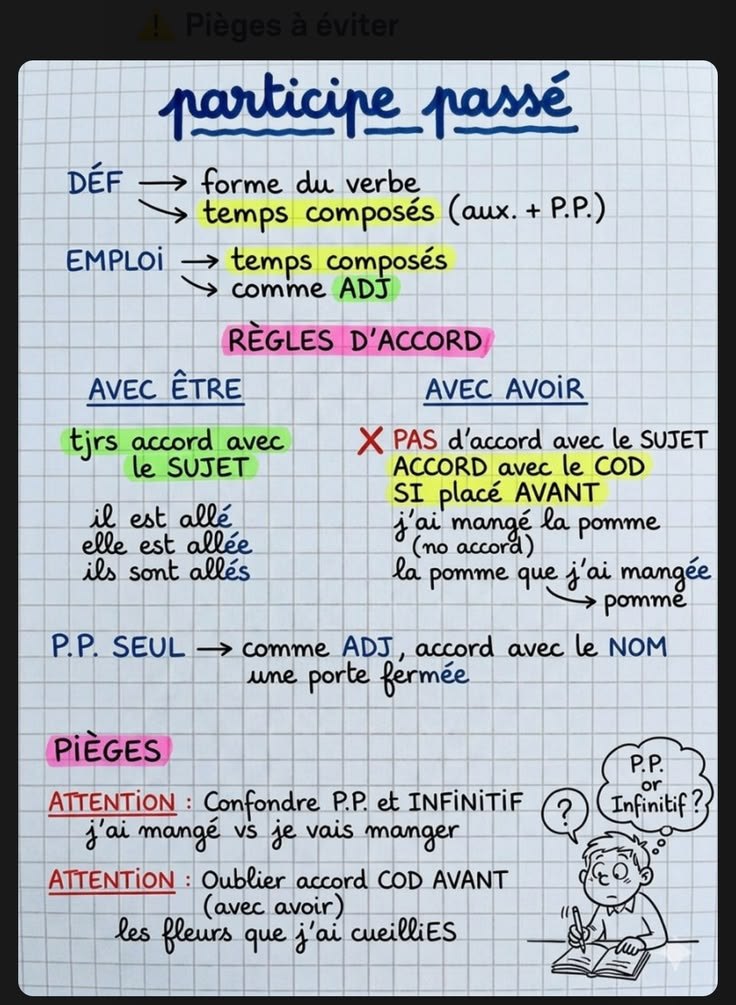 ⚠ Pièges à éviter
participe passé
DÉF → forme du verbe
→ temps composés (aux. + P.P.)
EMPLOI → temps composés
→ comme ADJ
RÈGLES D'ACCORD
AVEC ÊTRE
tjrs accord avec
le SUJET
il est allé
elle est allée
ils sont allés
AVEC AVOIR
❌ PAS d'accord avec le SUJET
ACCORD avec le COD
SI placé AVANT
j'ai mangé la pomme
(no accord)
la pomme que j'ai mangée
→ pomme
P.P. SEUL → comme ADJ, accord avec le NOM
une porte fermée
PIÈGES
ATTENTION : Confondre P.P. et INFINITIF
j'ai mangé vs je vais manger
ATTENTION : Oublier accord COD AVANT
(avec avoir)
les fleurs que j'ai cueilliES
?
P.P.
or
Infinitif ?